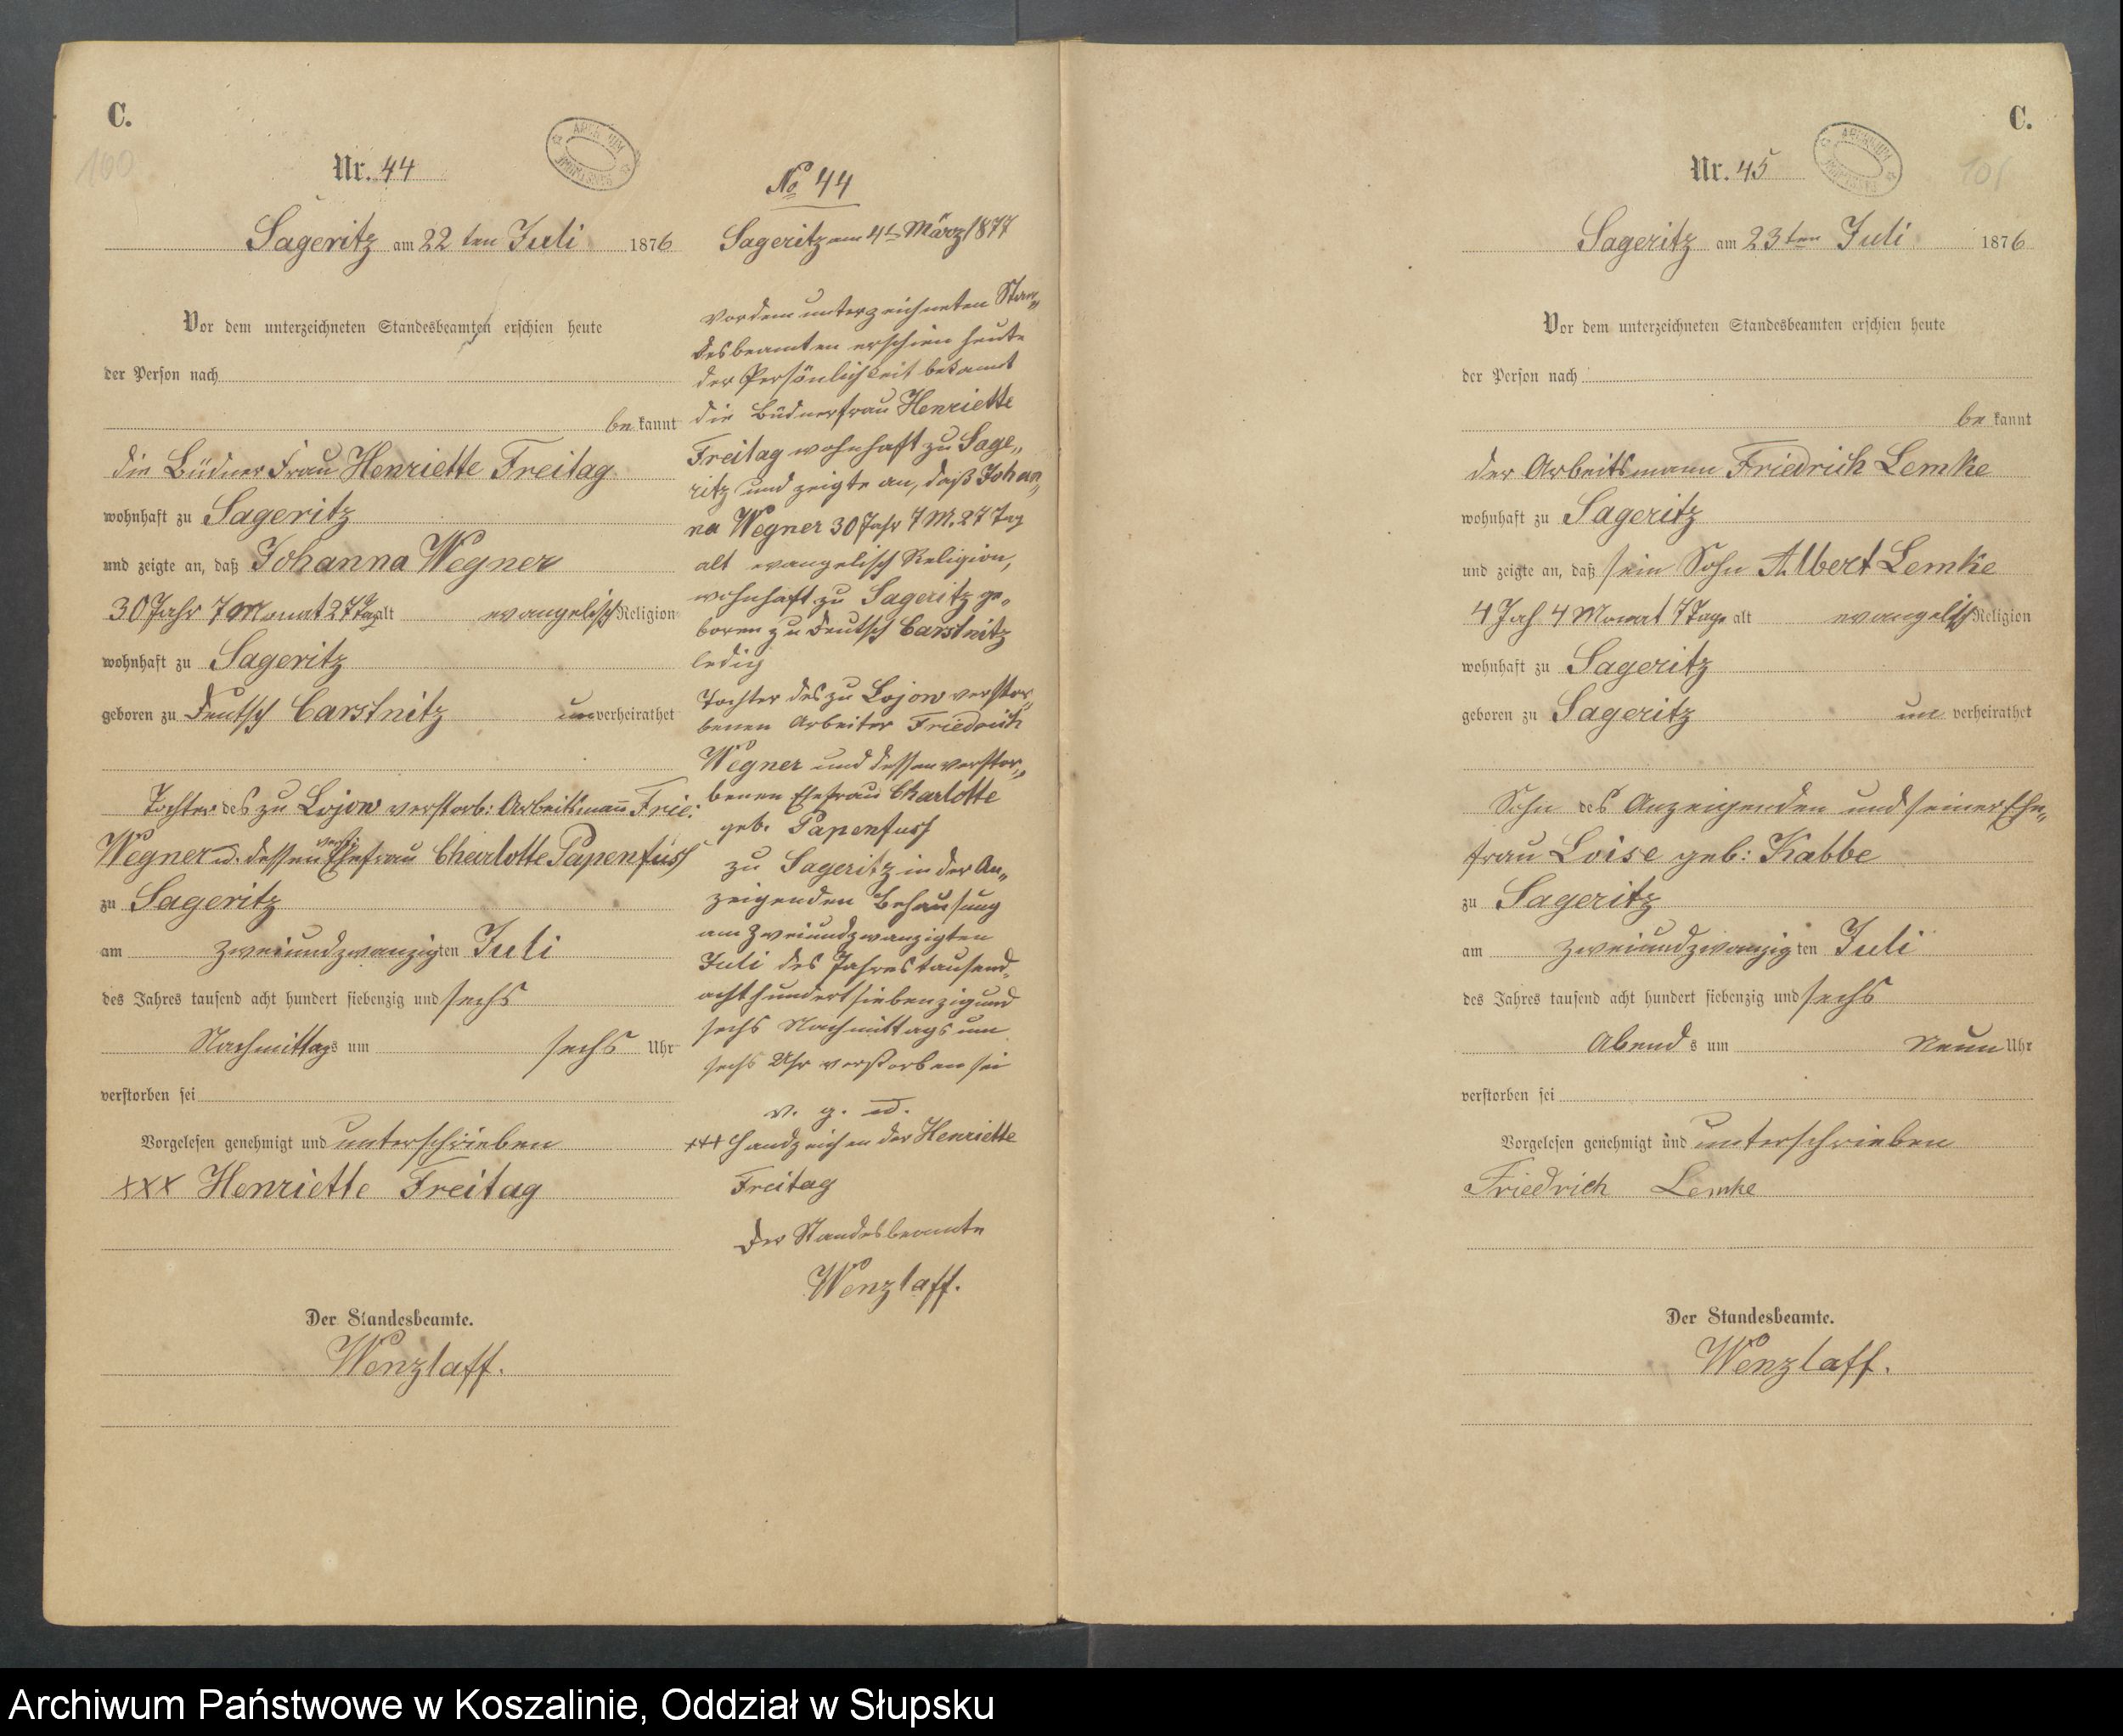 C.
100
Nr. 44
Sageritz am 22 ten Juli 1876
Vor dem unterzeichneten Standesbeamten erschien heute
der Person nach
be kannt
die Büdner Frau Henriette Freitag
wohnhaft zu Sageritz
und zeigte an, daß Johanna Wegner
30 Jahr 7 Monat 27 Tag alt evangelisch Religion
wohnhaft zu Sageritz
geboren zu Deutsch Carstnitz unverheirathet
Tochter des zu Lojow verstorb: Arbeitsmañ Frie:
Wegner u. dessen verst. Ehefrau Charlotte Papenfuss
zu Sageritz
am zweiundzwanzigten Juli
des Jahres tausend acht hundert siebenzig und sechs
Nachmittags um sechs Uhr
verstorben sei
Vorgelesen genehmigt und unterschrieben
XXX Henriette Freitag
Der Standesbeamte.
Wenzlaff.
No 44
Sageritz am 4t März 1877
Vor dem unterzeichneten Stan„
desbeamten erschien heute
der Persönlichkeit bekannt
die Büdnerfrau Henriette
Freitag wohnhaft zu Sage„
ritz und zeigte an, daß Johan„
na Wegner 30 Jahr 7 M. 27 Tag
alt evangelisch Religion,
wohnhaft zu Sageritz ge„
boren zu Deutsch Carstnitz
ledig
Tochter des zu Lojow verstor„
benen Arbeiter Friedrich
Wegner und dessen verstor„
benen Ehefrau Charlotte
geb. Papenfuss
zu Sageritz in der An„
zeigenden Behausung
am zweiundzwanzigten
Juli des Jahres tausend
achthundert siebenzig und
sechs Nachmittags um
sechs Uhr verstorben sei
v. g. u.
+++ Handzeichen der Henriette
Freitag
Der Standesbeamte
Wenzlaff.
C.
101
Nr. 45
ARCHIWUM
Sageritz am 23ten Juli 1876
Vor dem unterzeichneten Standesbeamten erschien heute
der Person nach
be kannt
der Arbeitsmann Friedrich Lemke
wohnhaft zu Sageritz
und zeigte an, daß sein Sohn Albert Lemke
4 Jah 4 Monat 7 Tage alt evangelisch Religion
wohnhaft zu Sageritz
geboren zu Sageritz un verheirathet
Sohn des Anzeigenden und seiner Ehe„
frau Loise geb: Kabbe
zu Sageritz
am zweiundzwanzigten Juli
des Jahres tausend acht hundert siebenzig und sechs
Abend s um Neun Uhr
verstorben sei
Vorgelesen genehmigt und unterschrieben
Friedrich Lemke
Der Standesbeamte.
Wenzlaff.
Archiwum Państwowe w Koszalinie, Oddział w Słupsku